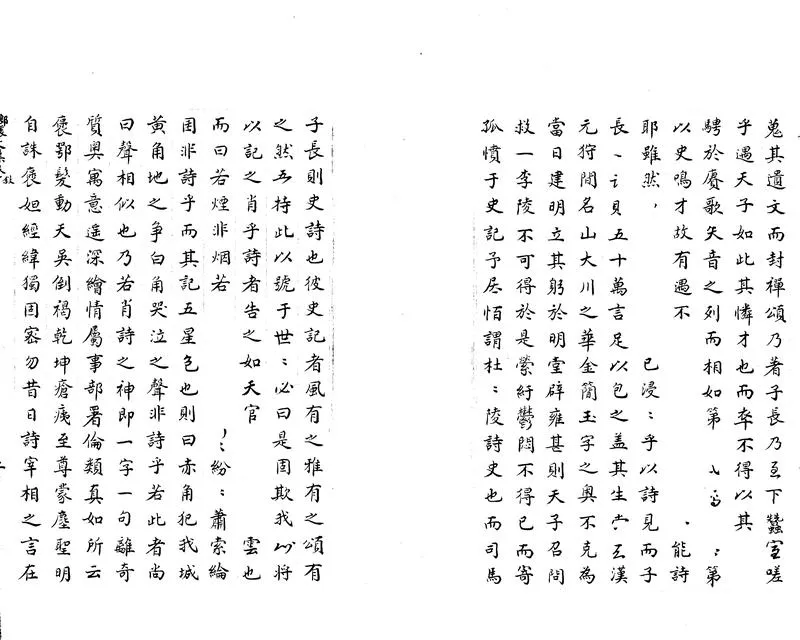 蒐其遺文而封禪頌乃著子長乃至下蠶室嗟
乎遇天子如此其憐才也而卒不得以其
騁於賡歌矢音之列而相如第 第
以史鳴才故有遇不 能詩
耶雖然 已浸〻乎以詩見而子
長 貝五十萬言足以包之蓋其生 漢
元狩間名山大川之華金簡玉字之奥不克為
當日建明立其躬於明堂辟雍甚則天子召問
救一李陵不可得於是縈紆鬱悶不得已而寄
孤憤于史記予居恒謂杜〻陵詩史也而司馬
子長則史詩也彼史記者風有之雅有之頌有
之然吾持此以號于世〻必曰是固欺我 將
以記之肖乎詩者告之如天官 雲也
而曰若煙非烟若 紛〻蕭索綸
固非詩乎而其記五星色也則曰赤角犯我城
黄角地之争白角哭泣之聲非詩乎若此者尚
曰聲相似也乃若肖詩之神即一字一句離奇
質奥寓意遥深繪情屬事部署倫類真如所云
褒鄂髮動天吳倒禍乾坤瘡痍至尊蒙塵聖明
自誅褒妲經緯獨固密勿昔日詩宰相之言在